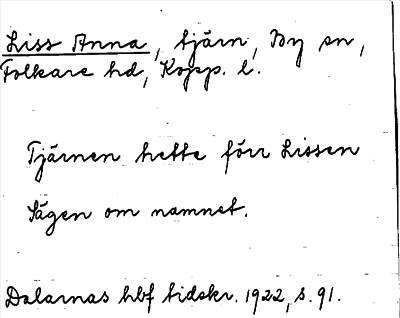 Liss Anna, tjärn, By sn,
Folkare hd, Kopp. l.
Tjärnen hette förr Lissen
Sägen om namnet.
Dalarnas hbf tidskr. 1922, s. 91.